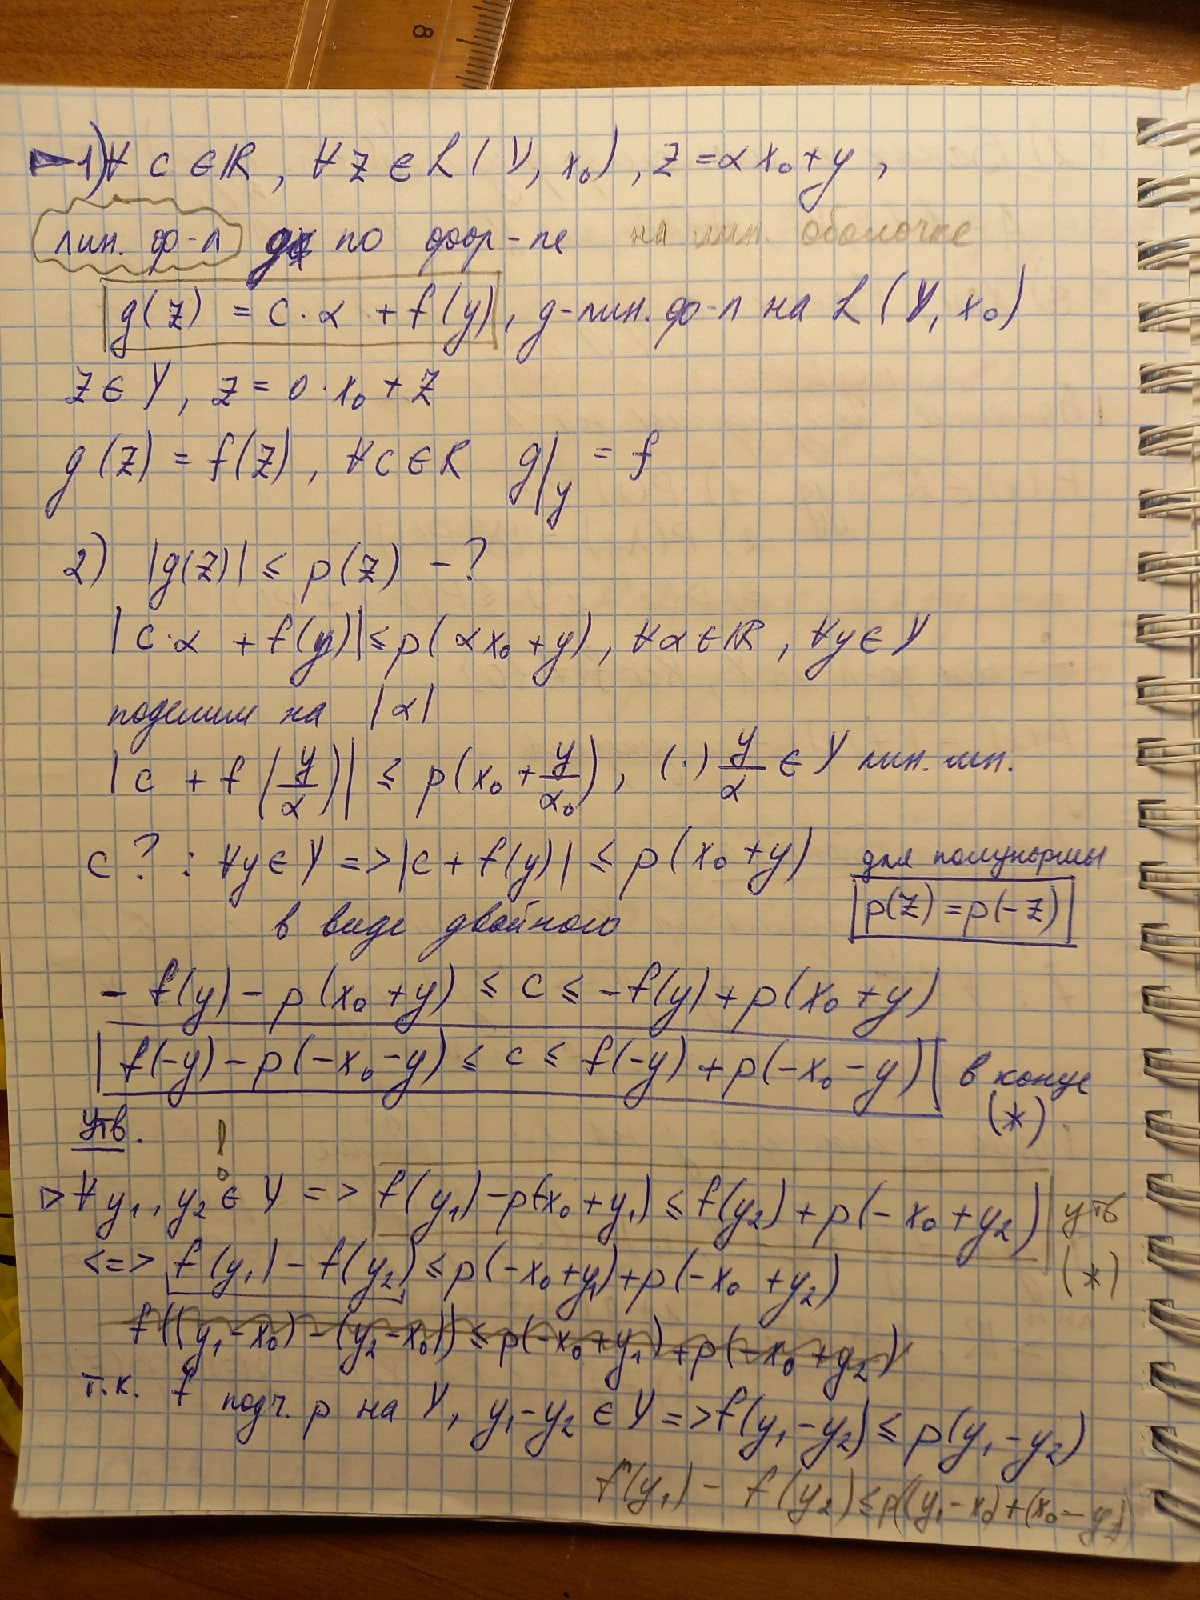 8
1) ∀ c ∈ ℝ, ∀ z ∈ L(Y, x₀), z = αx₀ + y,
лин. ф-л g по фор-ле на лин. оболочке
g(z) = c·α + f(y), g-лин. ф-л на L(Y, x₀)
z ∈ Y, z = 0·x₀ + z
g(z) = f(z), ∀c ∈ ℝ g|_y = f
2) |g(z)| ≤ p(z) - ?
|c·α + f(y)| ≤ p(αx₀ + y), ∀α ∈ ℝ, ∀y ∈ Y
поделим на |α|
|c + f(y/α)| ≤ p(x₀ + y/α₀), (·) y/α ∈ Y лин. мн.
c ? : ∀y ∈ Y => |c + f(y)| ≤ p(x₀ + y) для полунормы
в виде двойного p(z) = p(-z)
- f(y) - p(x₀ + y) ≤ c ≤ -f(y) + p(x₀ + y)
f(-y) - p(-x₀ - y) ≤ c ≤ f(-y) + p(-x₀ - y) в конце (*)
Утв. !
▷ ∀ y₁, y₂ ∈ Y => f(y₁) - p(-x₀ + y₁) ≤ f(y₂) + p(-x₀ + y₂) утв (*)
<=> f(y₁) - f(y₂) ≤ p(-x₀ + y₁) + p(-x₀ + y₂)
f((y₁ - x₀) - (y₂ - x₀)) ≤ p(-x₀ + y₁) + p(-x₀ + y₂)
т.к. f подч. p на Y, y₁ - y₂ ∈ Y => f(y₁ - y₂) ≤ p(y₁ - y₂)
f(y₁) - f(y₂) ≤ p((y₁ - x₀) + (x₀ - y₂)